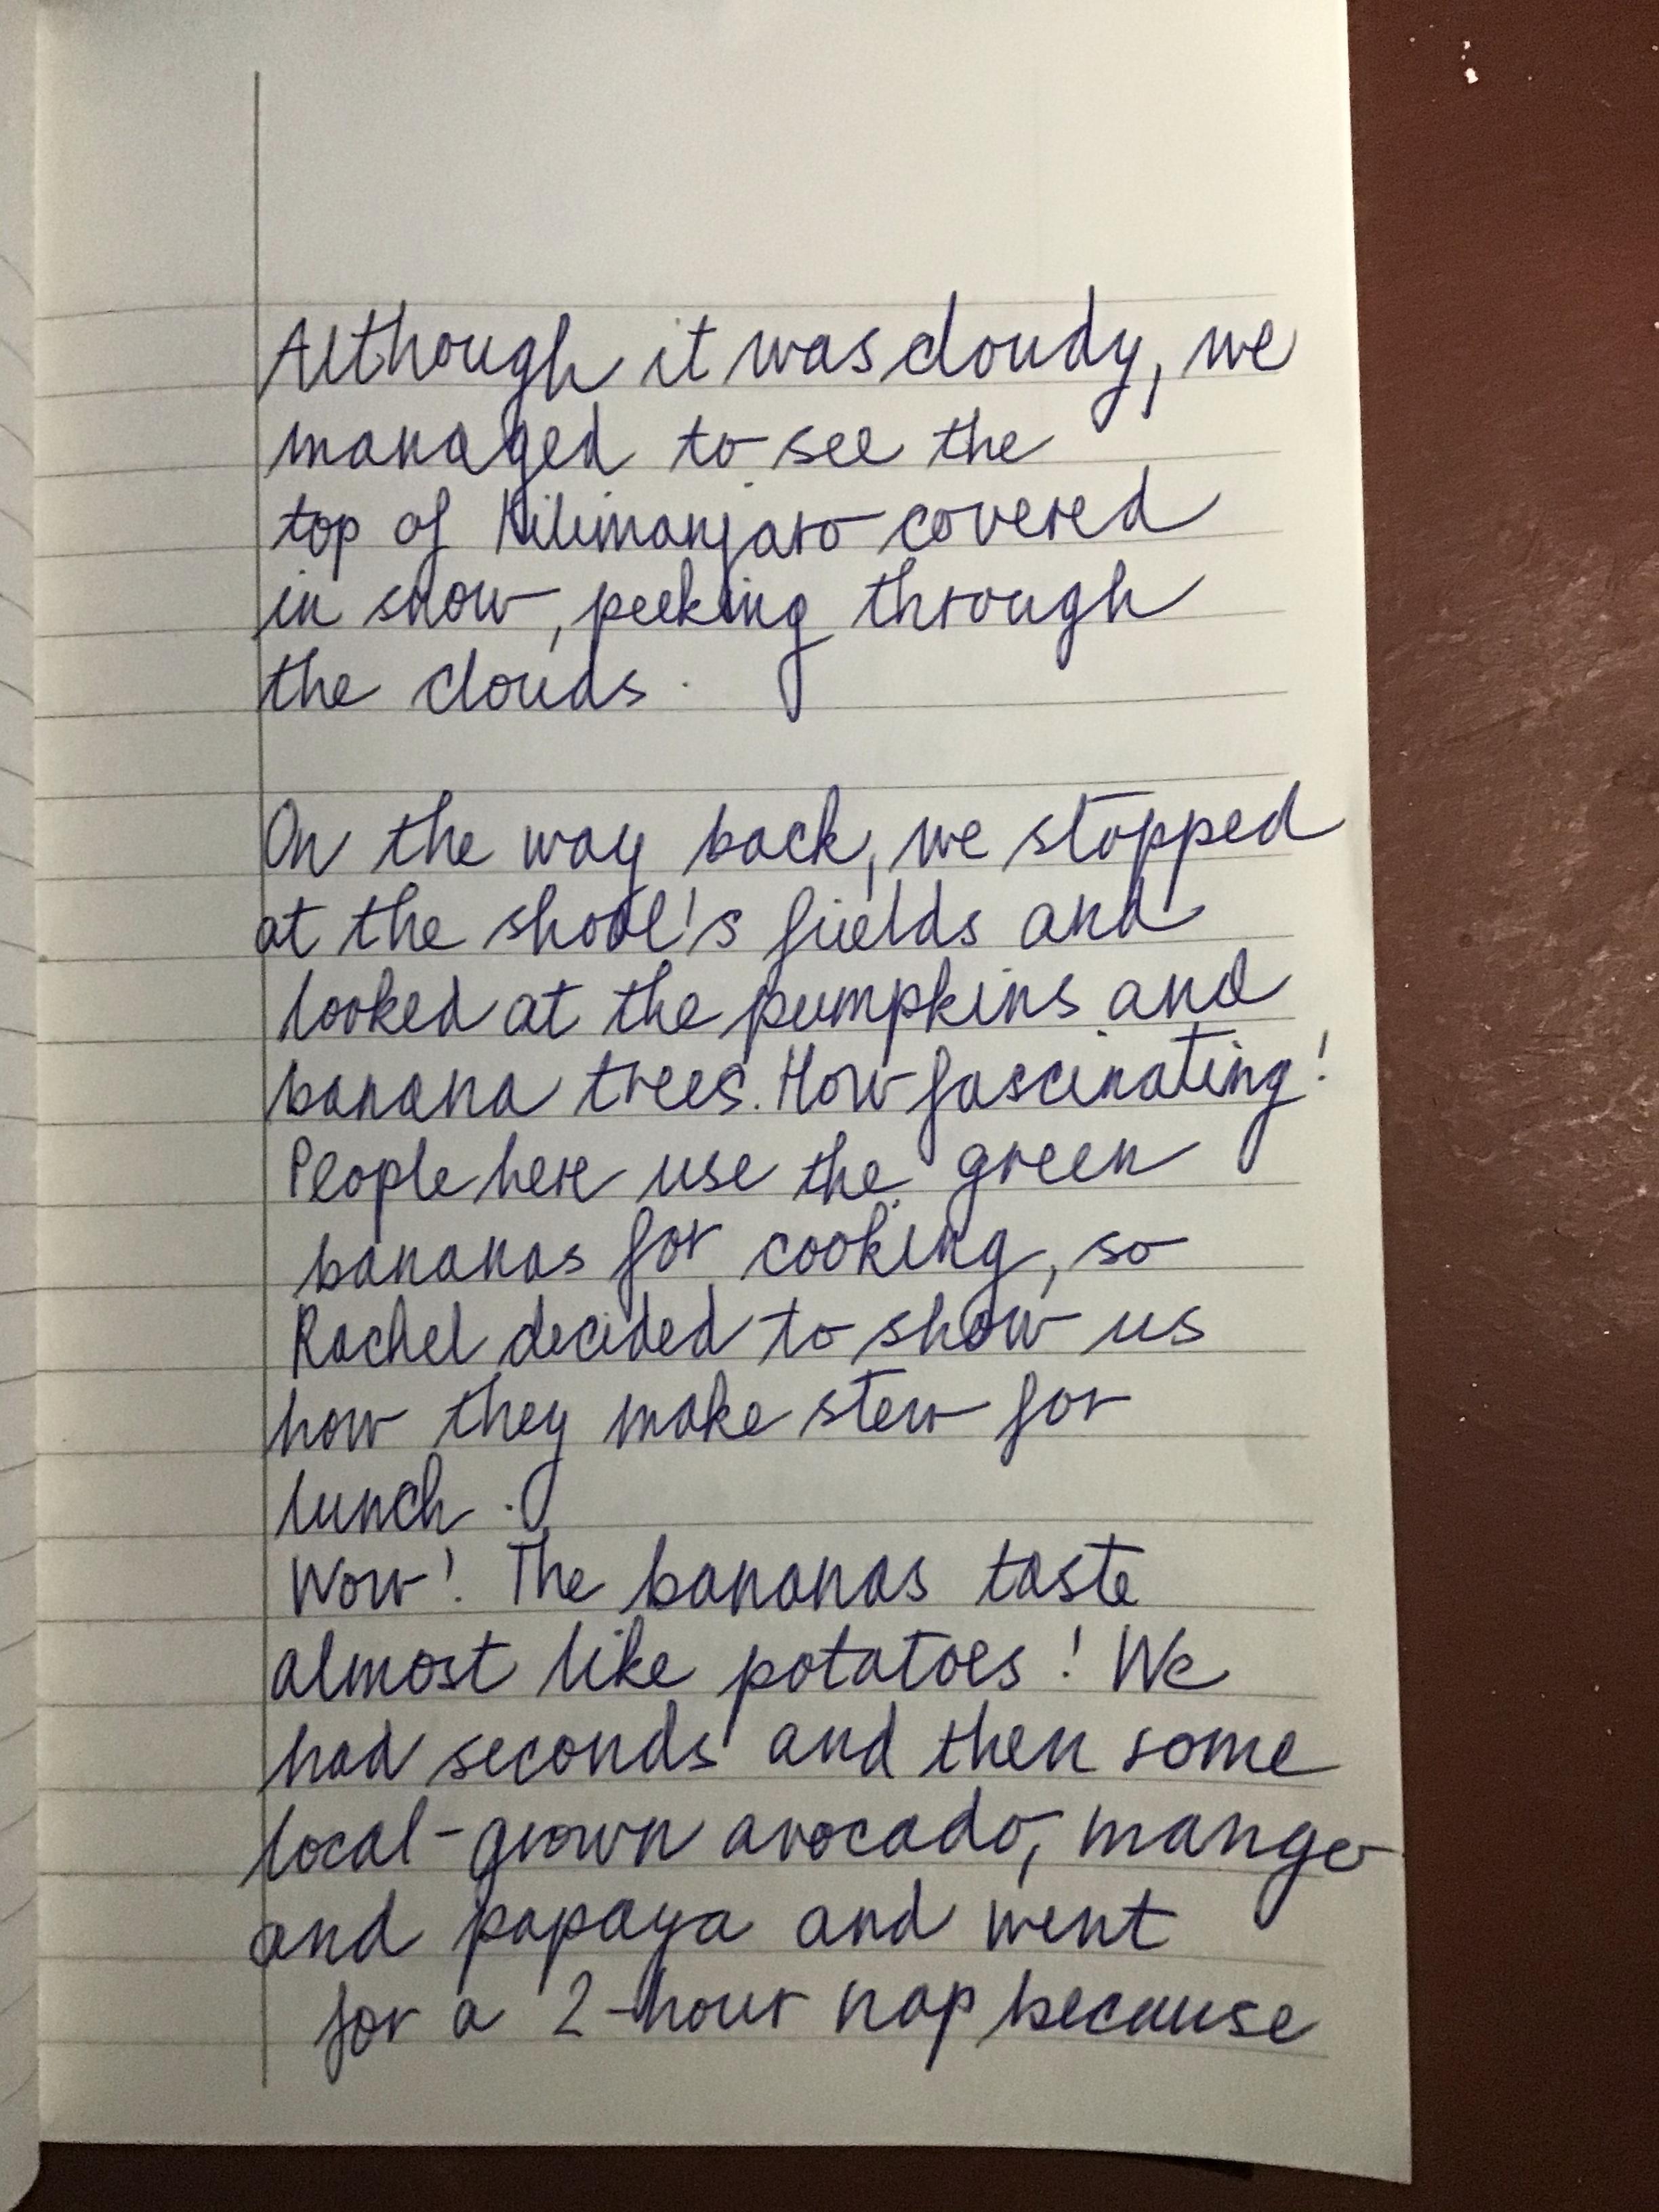 Although it was cloudy, we
managed to see the
top of Kilimanjaro covered
in snow, peeking through
the clouds.
On the way back, we stopped
at the shool's fields and
looked at the pumpkins and
banana trees. How fascinating!
People here use the green
bananas for cooking, so
Rachel decided to show us
how they make stew for
lunch.
Wow! The bananas taste
almost like potatoes! We
had seconds and then some
local-grown avocado, mango
and papaya and went
for a 2-hour nap because